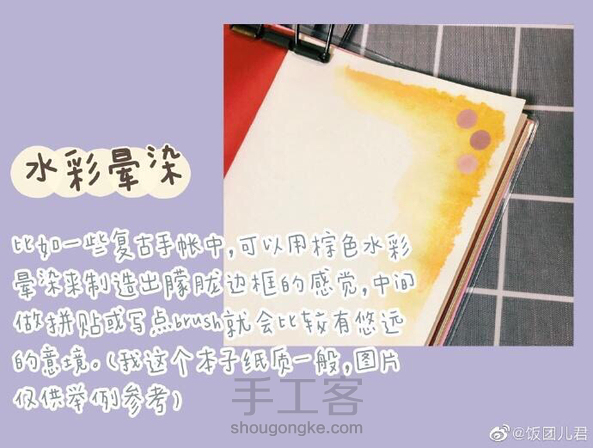 水彩晕染
比如一些复古手帐中,可以用棕色水彩
晕染来制造出朦胧边框的感觉,中间
做拼贴或写点brush就会比较有悠远
的意境。(我这个本子纸质一般,图片
仅供举例参考)
手工客
shougongke.com
@饭团儿君